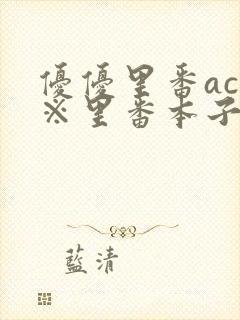 優優里番ac
※里番本子
藍清